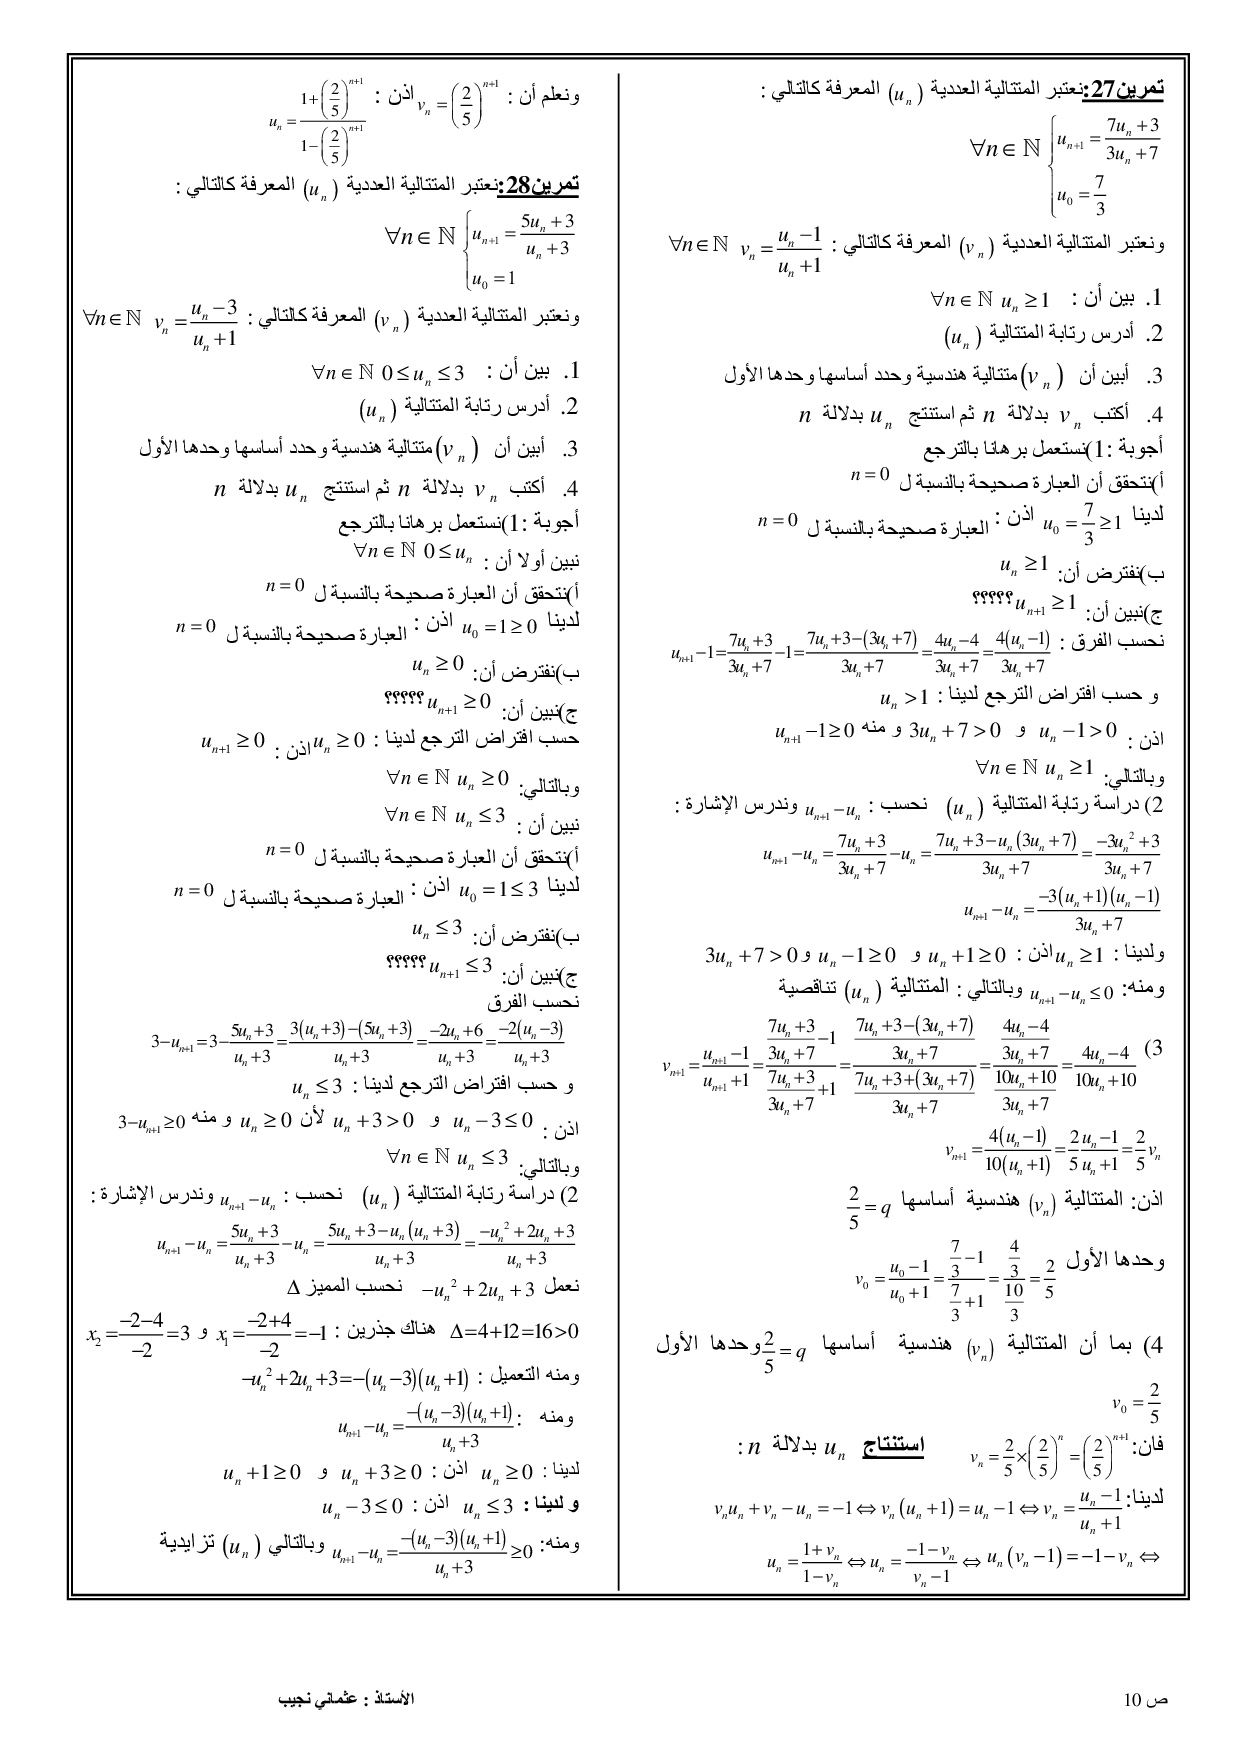 تمرين27:نعتبر المتتالية العددية (uₙ) المعرفة كالتالي :
∀n∈ℕ { uₙ₊₁ = (7uₙ+3)/(3uₙ+7) ; u₀ = 7/3
ونعتبر المتتالية العددية (vₙ) المعرفة كالتالي : vₙ = (uₙ−1)/(uₙ+1) ∀n∈ℕ
1. بين أن : ∀n∈ℕ uₙ ≥ 1
2. أدرس رتابة المتتالية (uₙ)
3. أبين أن (vₙ) متتالية هندسية وحدد أساسها وحدها الأول
4. أكتب vₙ بدلالة n ثم استنتج uₙ بدلالة n
أجوبة :1)نستعمل برهانا بالترجع
أ)نتحقق أن العبارة صحيحة بالنسبة ل n = 0
لدينا u₀ = 7/3 ≥ 1 اذن : العبارة صحيحة بالنسبة ل n = 0
ب)نفترض أن: uₙ ≥ 1
ج)نبين أن: uₙ₊₁ ≥ 1 ؟؟؟؟؟
نحسب الفرق : uₙ₊₁−1 = (7uₙ+3)/(3uₙ+7) −1 = (7uₙ+3−(3uₙ+7))/(3uₙ+7) = (4uₙ−4)/(3uₙ+7) = 4(uₙ−1)/(3uₙ+7)
و حسب افتراض الترجع لدينا : uₙ > 1
اذن : uₙ −1 > 0 و 3uₙ + 7 > 0 و منه uₙ₊₁ −1 ≥ 0
وبالتالي: ∀n∈ℕ uₙ ≥ 1
2) دراسة رتابة المتتالية (uₙ) نحسب : uₙ₊₁−uₙ وندرس الإشارة :
uₙ₊₁−uₙ = (7uₙ+3)/(3uₙ+7) −uₙ = (7uₙ+3−uₙ(3uₙ+7))/(3uₙ+7) = (−3uₙ²+3)/(3uₙ+7)
uₙ₊₁−uₙ = −3(uₙ+1)(uₙ−1)/(3uₙ+7)
ولدينا : uₙ ≥ 1 اذن : uₙ +1 ≥ 0 و uₙ −1 ≥ 0 و 3uₙ + 7 > 0
ومنه: uₙ₊₁−uₙ ≤ 0 وبالتالي : المتتالية (uₙ) تناقصية
3) vₙ₊₁ = (uₙ₊₁−1)/(uₙ₊₁+1) = ((7uₙ+3)/(3uₙ+7) −1)/((7uₙ+3)/(3uₙ+7) +1) = ((7uₙ+3−(3uₙ+7))/(3uₙ+7))/((7uₙ+3+(3uₙ+7))/(3uₙ+7)) = ((4uₙ−4)/(3uₙ+7))/((10uₙ+10)/(3uₙ+7)) = (4uₙ−4)/(10uₙ+10)
vₙ₊₁ = 4(uₙ−1)/10(uₙ+1) = 2/5 (uₙ−1)/(uₙ+1) = 2/5 vₙ
اذن: المتتالية (vₙ) هندسية أساسها 2/5 = q
وحدها الأول v₀ = (u₀−1)/(u₀+1) = (7/3 −1)/(7/3 +1) = (4/3)/(10/3) = 2/5
4) بما أن المتتالية (vₙ) هندسية أساسها 2/5 = q وحدها الأول
v₀ = 2/5
فان: vₙ = 2/5 × (2/5)ⁿ = (2/5)ⁿ⁺¹ استنتاج uₙ بدلالة n :
لدينا: vₙuₙ + vₙ − uₙ = −1 ⇔ vₙ(uₙ+1) = uₙ −1 ⇔ vₙ = (uₙ−1)/(uₙ+1)
uₙ = (1+vₙ)/(1−vₙ) ⇔ uₙ = (−1−vₙ)/(vₙ−1) ⇔ uₙ(vₙ−1) = −1−vₙ ⇔
ونعلم أن : vₙ = (2/5)ⁿ⁺¹ اذن : uₙ = (1+(2/5)ⁿ⁺¹)/(1−(2/5)ⁿ⁺¹)
تمرين28:نعتبر المتتالية العددية (uₙ) المعرفة كالتالي :
∀n∈ℕ { uₙ₊₁ = (5uₙ+3)/(uₙ+3) ; u₀ = 1
ونعتبر المتتالية العددية (vₙ) المعرفة كالتالي : vₙ = (uₙ−3)/(uₙ+1) ∀n∈ℕ
1. بين أن : ∀n∈ℕ 0 ≤ uₙ ≤ 3
2. أدرس رتابة المتتالية (uₙ)
3. أبين أن (vₙ) متتالية هندسية وحدد أساسها وحدها الأول
4. أكتب vₙ بدلالة n ثم استنتج uₙ بدلالة n
أجوبة :1)نستعمل برهانا بالترجع
نبين أولا أن : ∀n∈ℕ 0 ≤ uₙ
أ)نتحقق أن العبارة صحيحة بالنسبة ل n = 0
لدينا u₀ = 1 ≥ 0 اذن : العبارة صحيحة بالنسبة ل n = 0
ب)نفترض أن: uₙ ≥ 0
ج)نبين أن: uₙ₊₁ ≥ 0 ؟؟؟؟؟
حسب افتراض الترجع لدينا : uₙ ≥ 0 اذن : uₙ₊₁ ≥ 0
وبالتالي: ∀n∈ℕ uₙ ≥ 0
نبين أن : ∀n∈ℕ uₙ ≤ 3
أ)نتحقق أن العبارة صحيحة بالنسبة ل n = 0
لدينا u₀ = 1 ≤ 3 اذن : العبارة صحيحة بالنسبة ل n = 0
ب)نفترض أن: uₙ ≤ 3
ج)نبين أن: uₙ₊₁ ≤ 3 ؟؟؟؟؟
نحسب الفرق
3−uₙ₊₁ = 3−(5uₙ+3)/(uₙ+3) = (3(uₙ+3)−(5uₙ+3))/(uₙ+3) = (−2uₙ+6)/(uₙ+3) = −2(uₙ−3)/(uₙ+3)
و حسب افتراض الترجع لدينا : uₙ ≤ 3
اذن : uₙ −3 ≤ 0 و uₙ +3 > 0 لأن uₙ ≥ 0 و منه 3−uₙ₊₁ ≥ 0
وبالتالي: ∀n∈ℕ uₙ ≤ 3
2) دراسة رتابة المتتالية (uₙ) نحسب : uₙ₊₁−uₙ وندرس الإشارة :
uₙ₊₁−uₙ = (5uₙ+3)/(uₙ+3) −uₙ = (5uₙ+3−uₙ(uₙ+3))/(uₙ+3) = (−uₙ²+2uₙ+3)/(uₙ+3)
نعمل −uₙ²+2uₙ+3 نحسب المميز Δ
Δ=4+12=16>0 هناك جذرين : x₁ = (−2+4)/−2 = −1 و x₂ = (−2−4)/−2 = 3
ومنه التعميل : −uₙ²+2uₙ+3 = −(uₙ−3)(uₙ+1)
ومنه : uₙ₊₁−uₙ = −(uₙ−3)(uₙ+1)/(uₙ+3)
لدينا : uₙ ≥ 0 اذن : uₙ +3 ≥ 0 و uₙ +1 ≥ 0
و لدينا : uₙ ≤ 3 اذن : uₙ −3 ≤ 0
ومنه: uₙ₊₁−uₙ = −(uₙ−3)(uₙ+1)/(uₙ+3) ≥ 0 وبالتالي (uₙ) تزايدية
ص 10
الأستاذ : عثماني نجيب